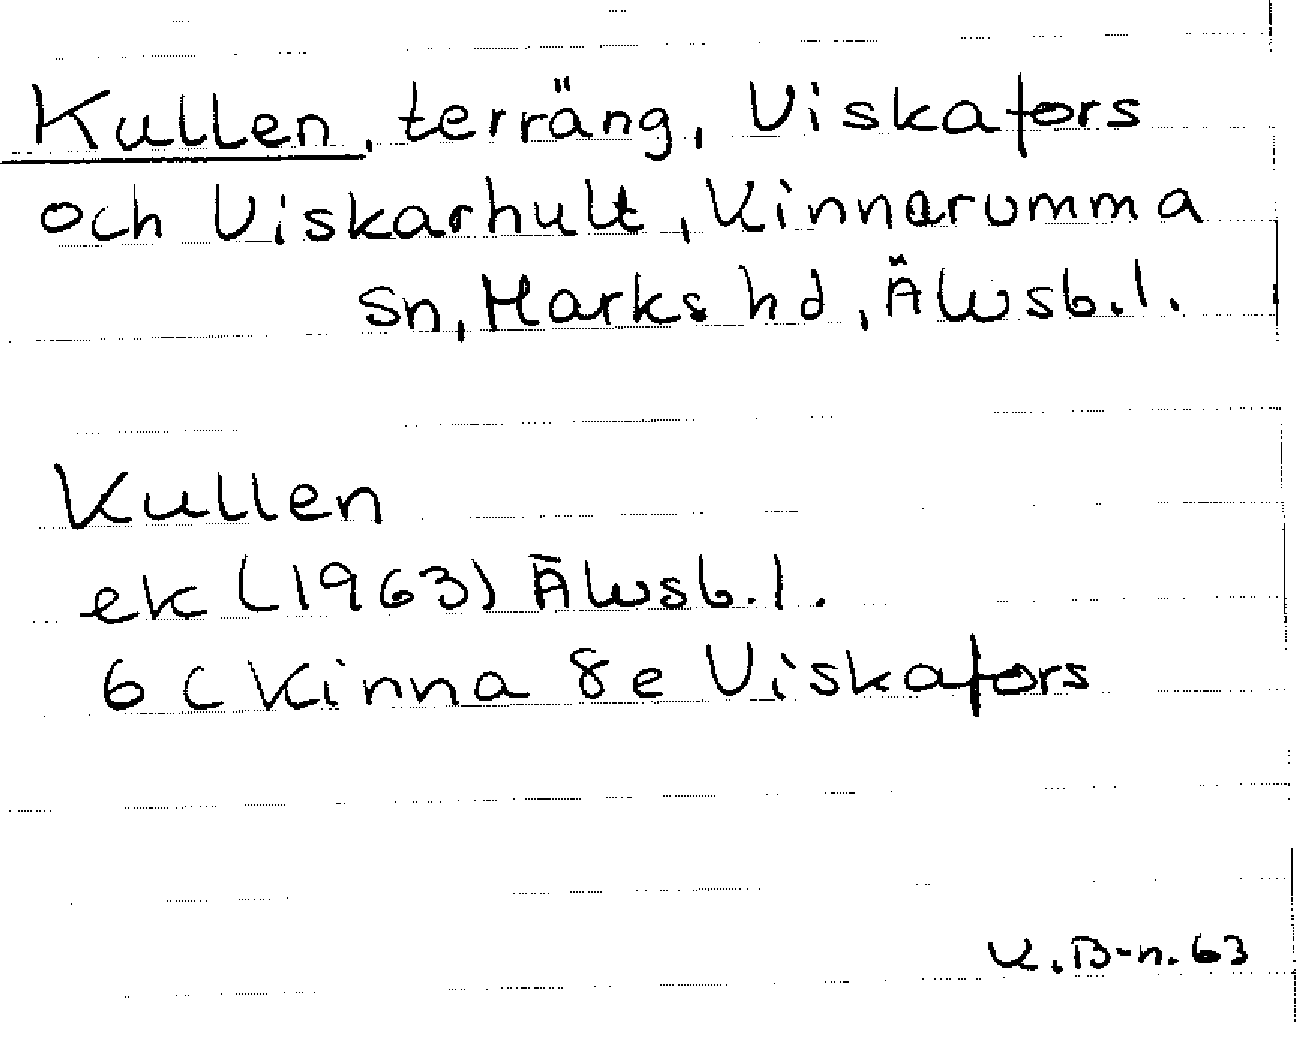 Kullen, terräng, Viskafors
och Viskarhult, Kinnarumma
Sn, Marks hd, Älvsb.l.
Kullen
ek (1963) Älvsb.l.
6 C Kinna 8e Viskafors
K.B-n. 63